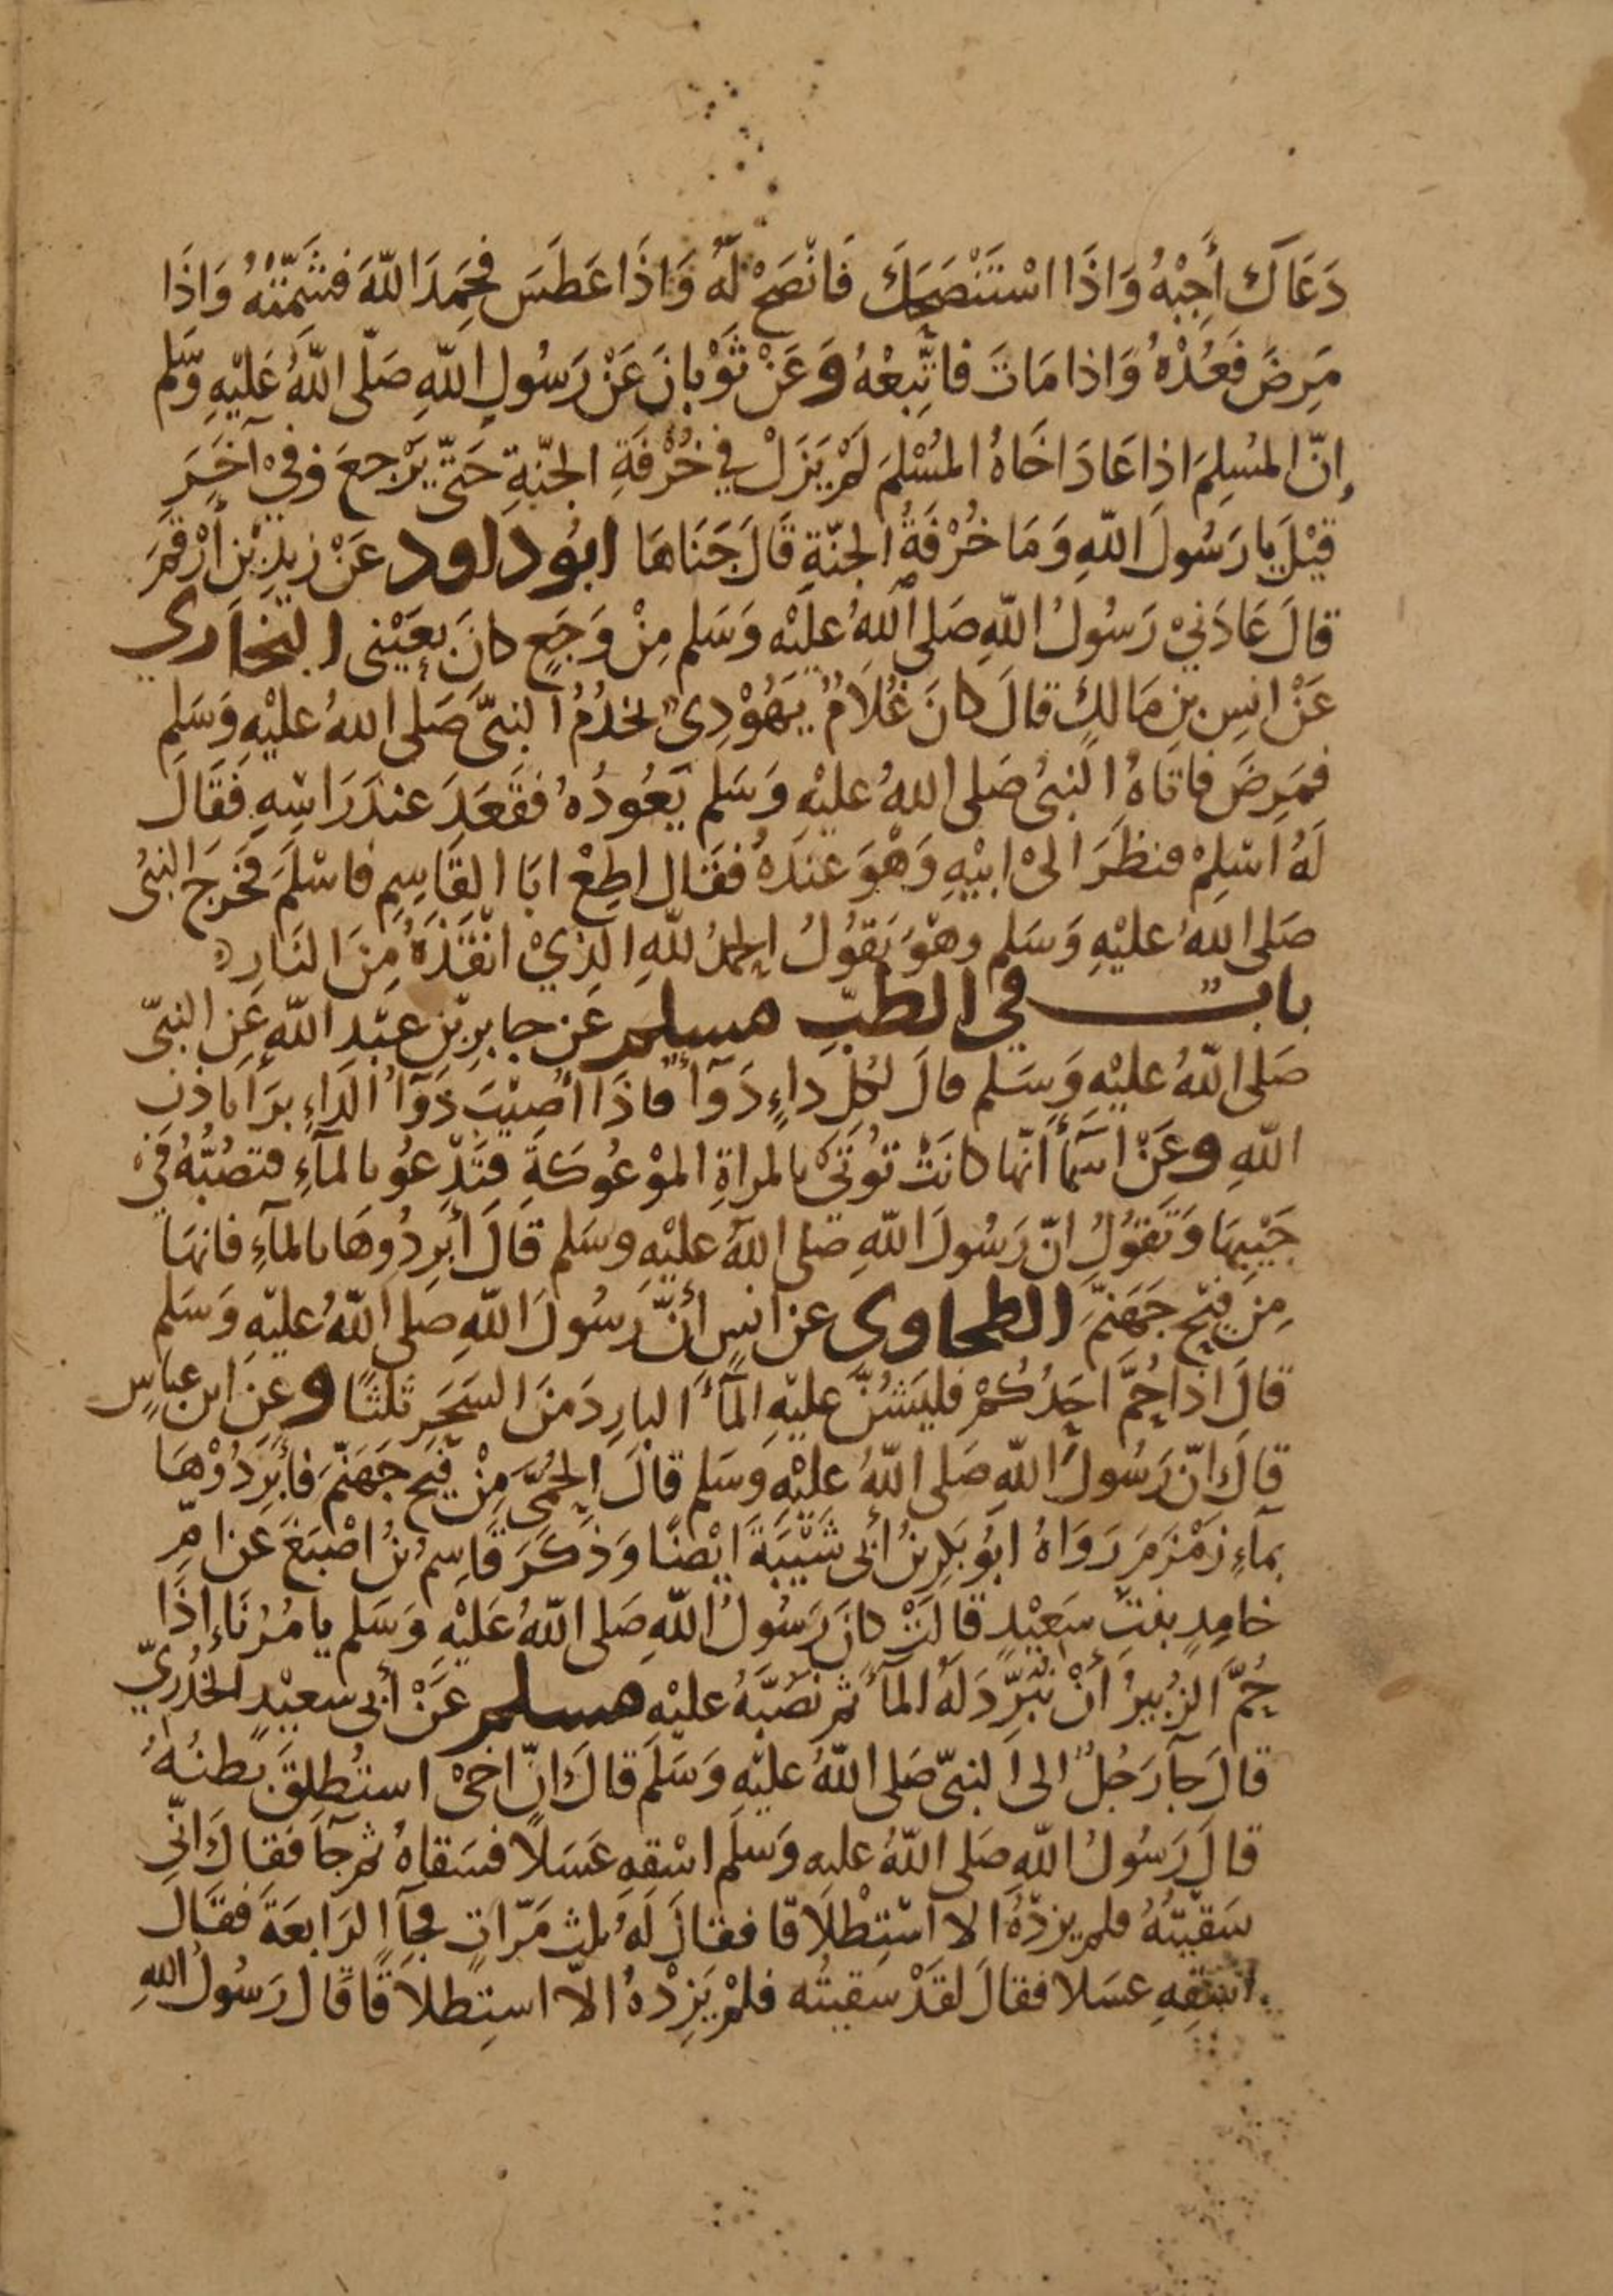 دَعَاكَ أَجِبْهُ وَاذَا اسْتَنْصَحَكَ فَانْصَحْ لَهُ وَاذَا عَطَسَ فَحَمِدَ اللّٰهَ فَشَمِّتْهُ وَاذَا
مَرِضَ فَعُدْهُ وَاذا مَاتَ فاتَّبِعْهُ وَعَنْ ثَوْبانَ عَنْ رَسُولِ اللّٰهِ صَلّى اللّٰهُ عَلَيْهِ وَسَّلم
إنّ المسْلِمَ اذا عَادَ اخَاهُ المُسْلمَ لَمْ يَزَلْ في خُرْفَةِ الجنّةِ حَتّى يَرْجعَ وَفِيْ آخَرَ
قيْلَ يا رَسُولَ اللّٰهِ وَمَا خُرْفَةُ الجنّةِ قَالَ جَنَاهَا ابُو داود عَنْ زيدِ بْنِ أرْقَمَ
قالَ عَادَنيْ رَسُولُ اللّٰهِ صَلى اللّٰهُ عليْه وَسَلم مِنْ وَجَعٍ كانَ بِعَيْنِى البخاري
عَنْ انسِ بنِ مَالكٍ قالَ كانَ غُلَامٌ يَهُوْدِىٌ يخدُمُ النبىَّ صَلى اللهُ عليْهِ وَسَلم
فمَرِضَ فاتاهُ النبىُ صَلى اللهُ عليْهِ وَسَلم يَعُودُهُ فقَعَدَ عندَ رَاسِهِ فَقَالَ
لَهُ اَسْلِمْ فنظَرَ الىْ ابيْهِ وَهْوَ عندَهُ فقَال اطِعْ ابَا القَاسِمِ فاسْلَمَ فخَرَجَ النبىُ
صَلى اللهُ عليْهِ وَسَلم وهْوَ يَقوُلُ الحمدُ للّٰهِ الذِيْ انقَذَهُ مِنَ النَارِ
بابٌ في الطبِّ مسلم عَن جابرِ بْنِ عبْدِ اللّٰهِ عَنِ النبىّ
صَلى اللّٰهُ عليْهِ وَسَلم قالَ لكُلِ داءٍ دَوَآءٌ فاذَا أُصِيْبَ دَوَآءُ الدَاءِ بَرَأَ باذنِ
اللّٰهِ وعَنْ اسمآءَ أنّها كانَتْ تُوتَىْ بالمراةِ الموْعُوكَةِ فتَدْعُو بالمآءِ فتصُبُّهُ فىْ
جَيْبِهَا وَتَقوُلُ انّ رَسُولَ اللّٰهِ صَلى اللّٰهُ عليْهِ وسَلم قَالَ أبرِدُوهَا بالمآءِ فانهَا
مِن فَيْحِ جَهَنَّمَ الطحاوى عن انسٍ أنَّ رَسُولَ اللّٰهِ صَلى اللّٰهُ عليْهِ وَسَلم
قالَ اذا حُمَّ احَدُكُمْ فليَشُنَّ عليْهِ المآءَ البارِدَ مَنَ السَحَرِ ثَلثًا وعَنِ ابن عباسٍ
قالَ انّ رَسُولَ اللّٰهِ صَلى اللّٰهُ عليْهِ وَسَلم قالَ الحُمَّى مِنْ فَيْحِ جَهَنّمَ فأبرِدُوْهَا
بمآءِ زَمْزَمَ رَوَاهُ ابُو بَكرِ بنُ أبى شَيْبَةَ ايْضًا وَذكَرَ قاسِمُ بنُ اصْبَغَ عَن امِّ
خامِدٍ بنتِ سَعِيْدٍ قالَتْ كانَ رَسُولُ اللّٰهِ صَلى اللّٰهُ عَليْهِ وَسَلم يامُرُنَاء اذَا
حُمَّ الزُبيرُ أنْ نُبَرِّدَ لَهُ المآءَ ثم نَصُبَّهُ عليْهِ مسلم عَنْ أبى سعيْدٍ الخُدْرِيّ
قالَ جآءَ رَجُلٌ الى النبىّ صَلى اللّٰهُ عليْهِ وَسَلَم قالَ انّ اخىْ استُطلِقَ بَطنُهُ
قالَ رَسُولُ اللّٰهِ صَلى اللّٰهُ عليه وَسَلَم اسْقِهِ عَسَلًا فسَقاهُ ثم جآءَ فقالَ انّى
سَقيْتُهُ فلم يزدْهُ الا اسْتِطْلَاقا فقالَ لَهُ ثلث مَرّاتٍ فجآءَ الرَابعَةَ فقَال
اسْقِهِ عسَلا فقالَ لقَدْ سَقيتُه فلمْ يَزِدْهُ الاّ استِطلاَقًا قَال رَسُولُ اللّٰهِ